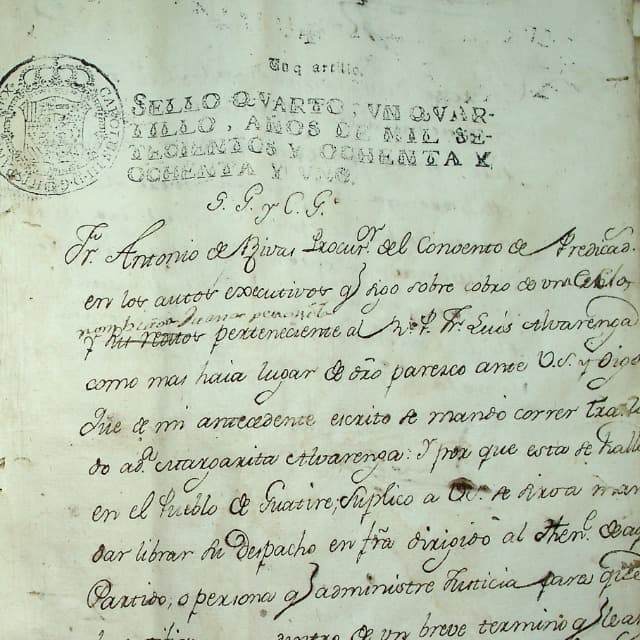 Un q artillo.
SELLO QVARTO, VN QVAR-
TILLO, AÑOS DE MIL SE-
TECIENTOS Y OCHENTA Y
OCHENTA Y VNO.
S. G. y C. G.
Fr. Antonio de Rivas Procur.or del Convento de Predicad
en los autos executivos q sigo sobre cobro de un
y sus reditos perteneciente al R. P. Fr. Luis Alvarenga
como mas haia lugar de dro paresco ante V.S. y Digo
Que de mi antecedente escrito se mandó correr tra
do a d.a Margarita Alvarenga: Y por que esta se halla
en el Pueblo de Guatire, Suplico a V.S. se sirva man
dar librar su Despacho en fra dirigido al Then.e de aq
Partido, o persona q administre Justicia para que
dentro de un breve termino q le